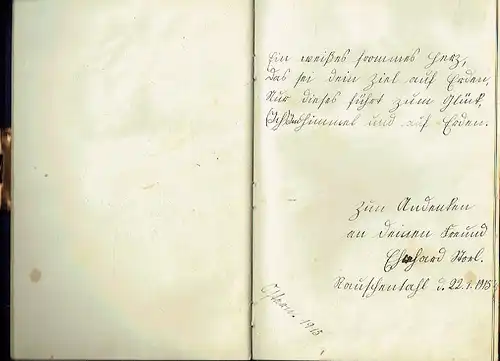 Ein weißes frommes Herz,
Das sei dein Ziel auf Erden,
Nur dieses führt zum Glück,
Himmel und auf Erden.
Zum Andenken
an deinen Freund
Ehrhard
Rauschentahl d. 22.1.1915
Ostern 1915